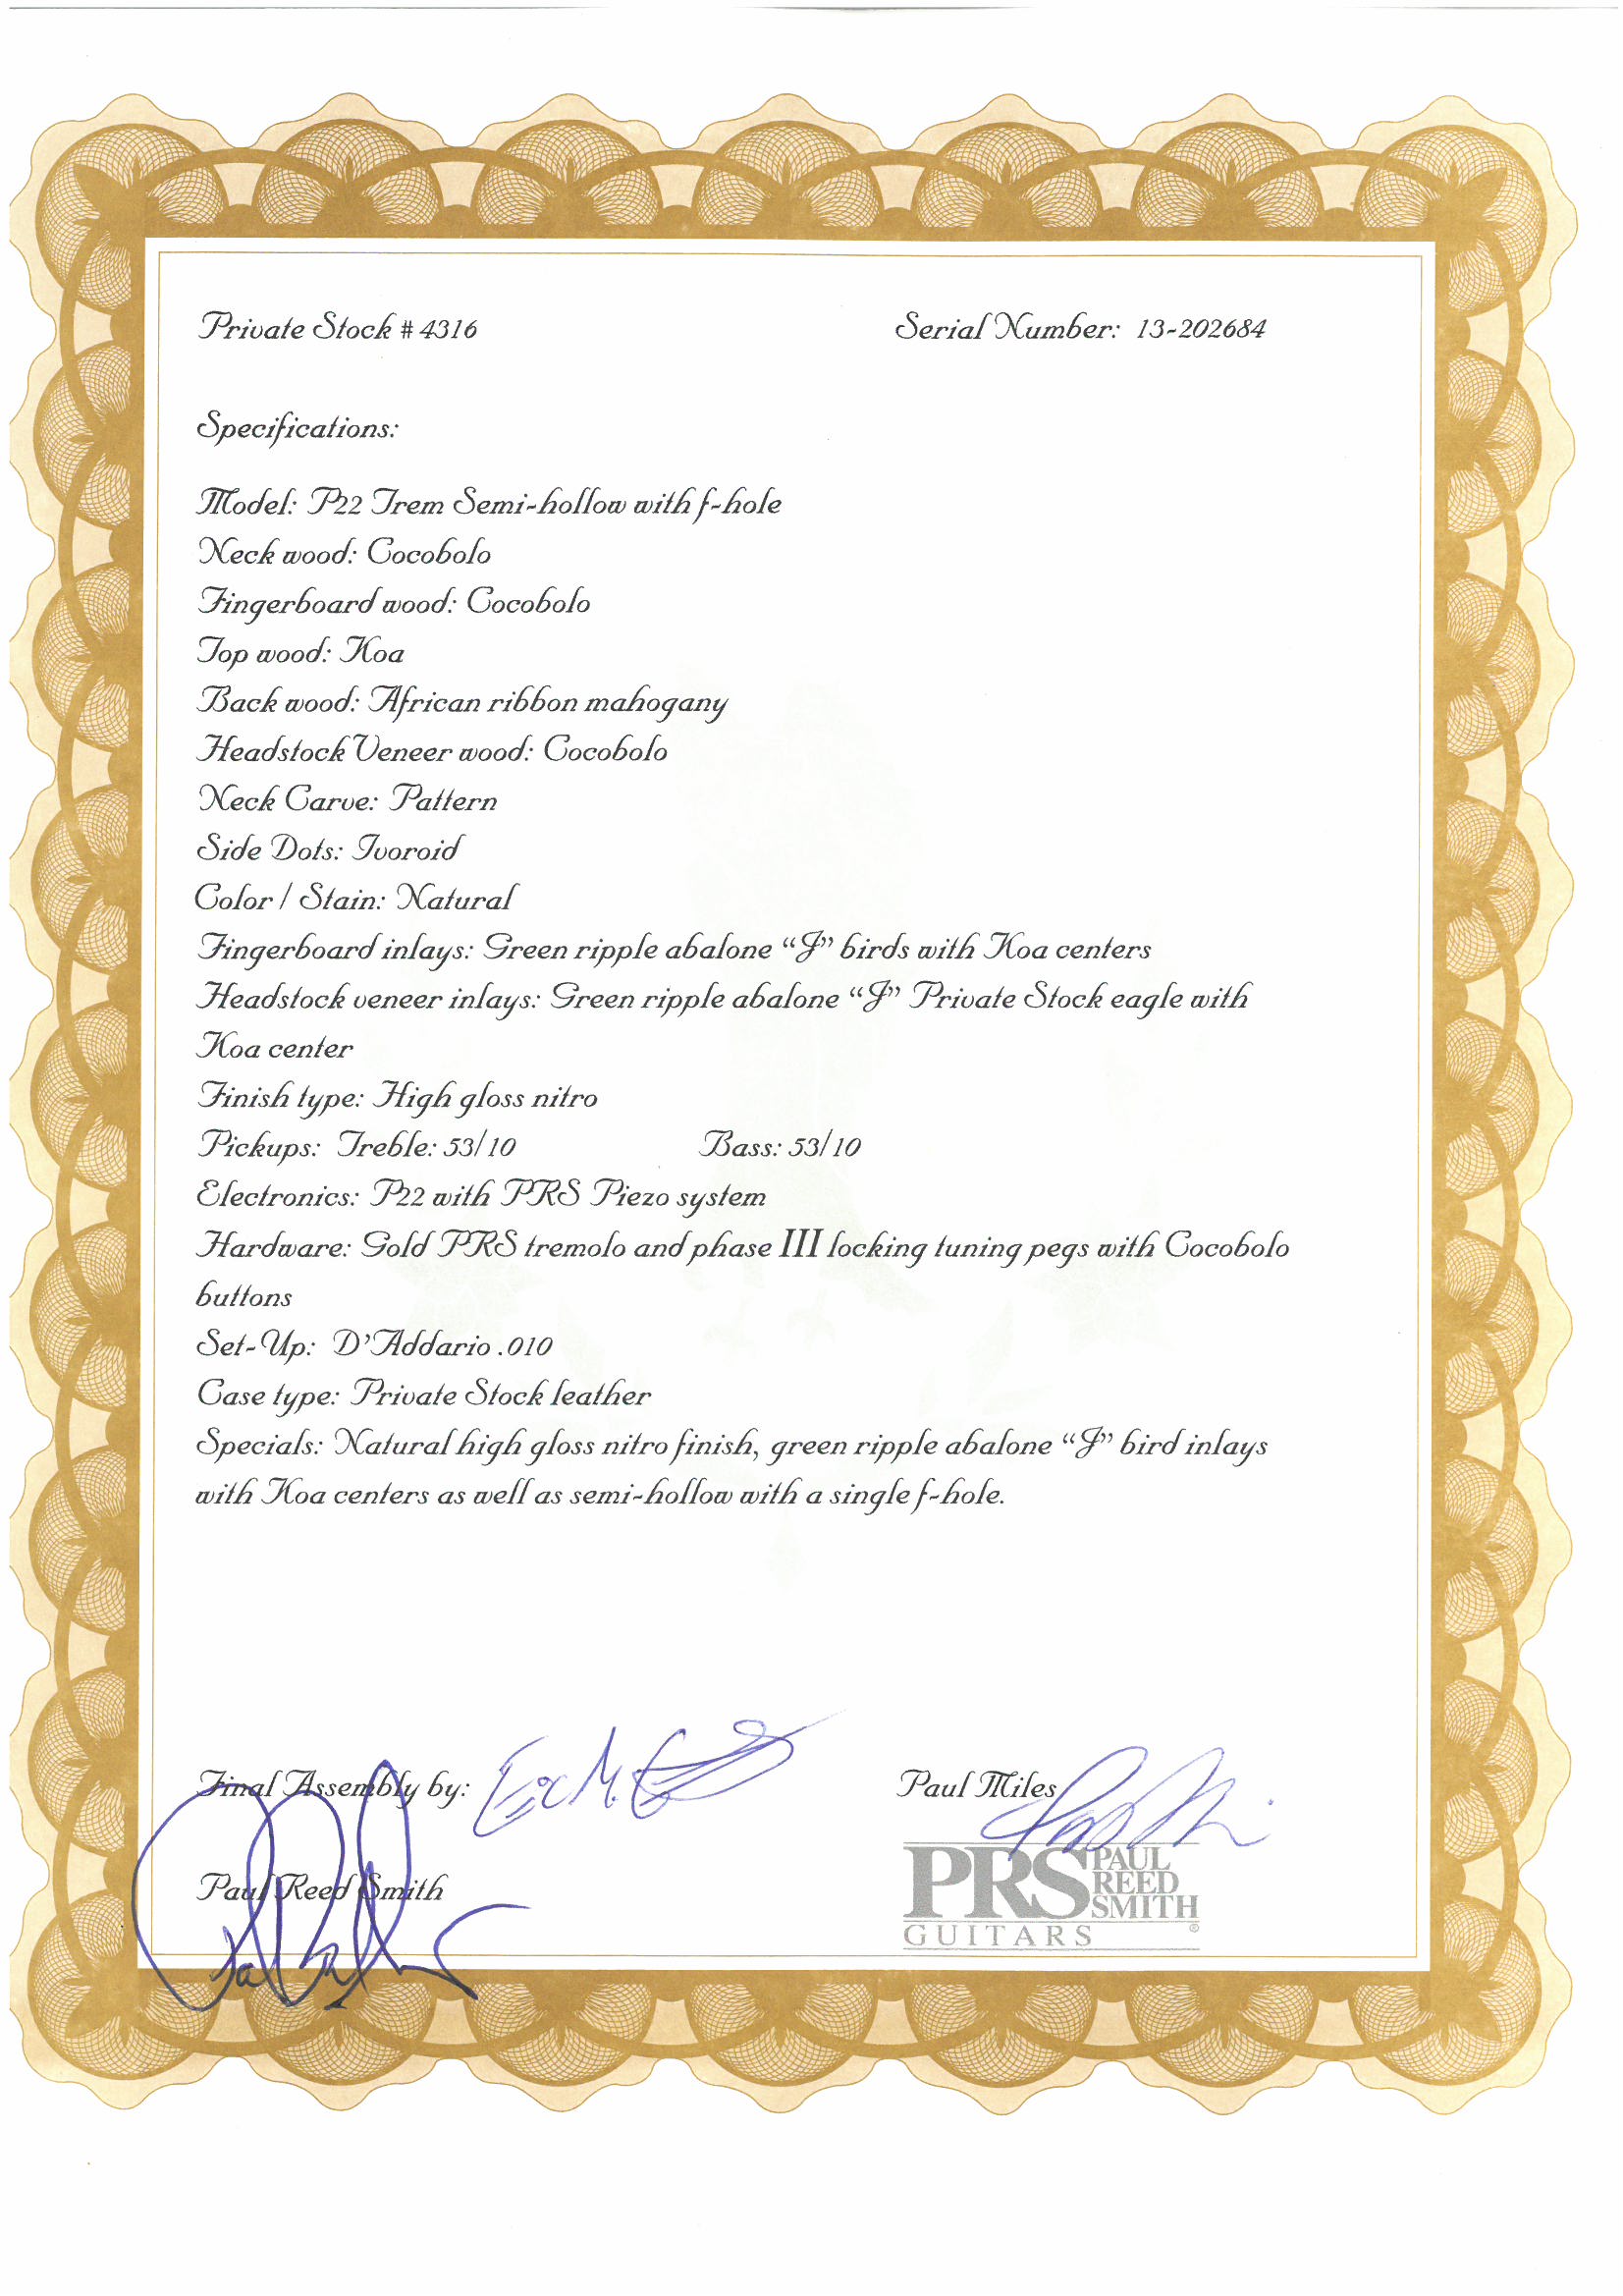 Private Stock # 4316 Serial Number: 13-202684
Specifications:
Model: P22 Trem Semi-hollow with f-hole
Neck wood: Cocobolo
Fingerboard wood: Cocobolo
Top wood: Koa
Back wood: African ribbon mahogany
Headstock Veneer wood: Cocobolo
Neck Carve: Pattern
Side Dots: Ivoroid
Color / Stain: Natural
Fingerboard inlays: Green ripple abalone “J” birds with Koa centers
Headstock veneer inlays: Green ripple abalone “J” Private Stock eagle with
Koa center
Finish type: High gloss nitro
Pickups: Treble: 53/10 Bass: 53/10
Electronics: P22 with PRS Piezo system
Hardware: Gold PRS tremolo and phase III locking tuning pegs with Cocobolo
buttons
Set-Up: D’Addario .010
Case type: Private Stock leather
Specials: Natural high gloss nitro finish, green ripple abalone “J” bird inlays
with Koa centers as well as semi-hollow with a single f-hole.
Final Assembly by: Paul Miles
Paul Reed Smith
PRS PAUL
REED
SMITH
GUITARS ®